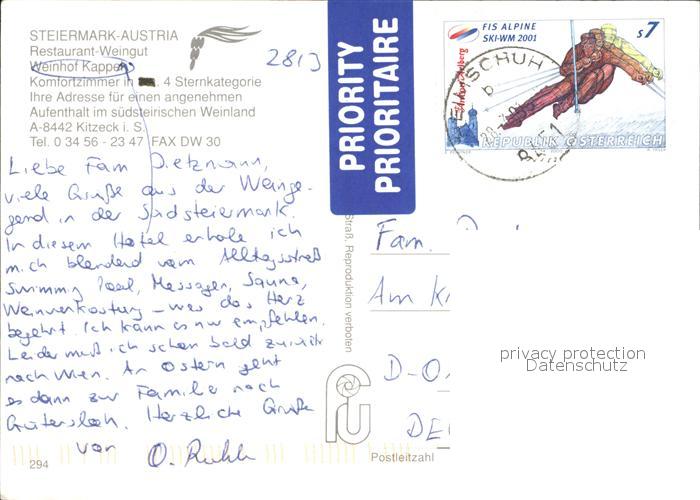 STEIERMARK-AUSTRIA
Restaurant-Weingut
Weinhof Kappel
Komfortzimmer in 4 Sternkategorie
Ihre Adresse für einen angenehmen
Aufenthalt im südsteirischen Weinland
A-8442 Kitzeck i. S.
Tel. 0 34 56 - 23 47 FAX DW 30
Liebe Fam. Dietzmann,
viele Grüße aus der Weinge-
gend in der Südsteiermark.
In diesem Hotel erhole ich
mich blendend vom Alltagsstreß
Swimming Pool, Massagen, Sauna,
Weinverkostung – was das Herz
begehrt. Ich kann es nur empfehlen.
Leider muß ich schon bald zurück
nach Wien. An Ostern geht
es dann zur Familie nach
Gütersloh. Herzliche Grüße
von O.
294
PRIORITY
PRIORITAIRE
FIS ALPINE
SKI-WM 2001
S7
REPUBLIK ÖSTERREICH
SCHUH
b
8451
Straß. Reproduktion verboten
Fam.
Am
D-O
DE
Postleitzahl
privacy protection
Datenschutz